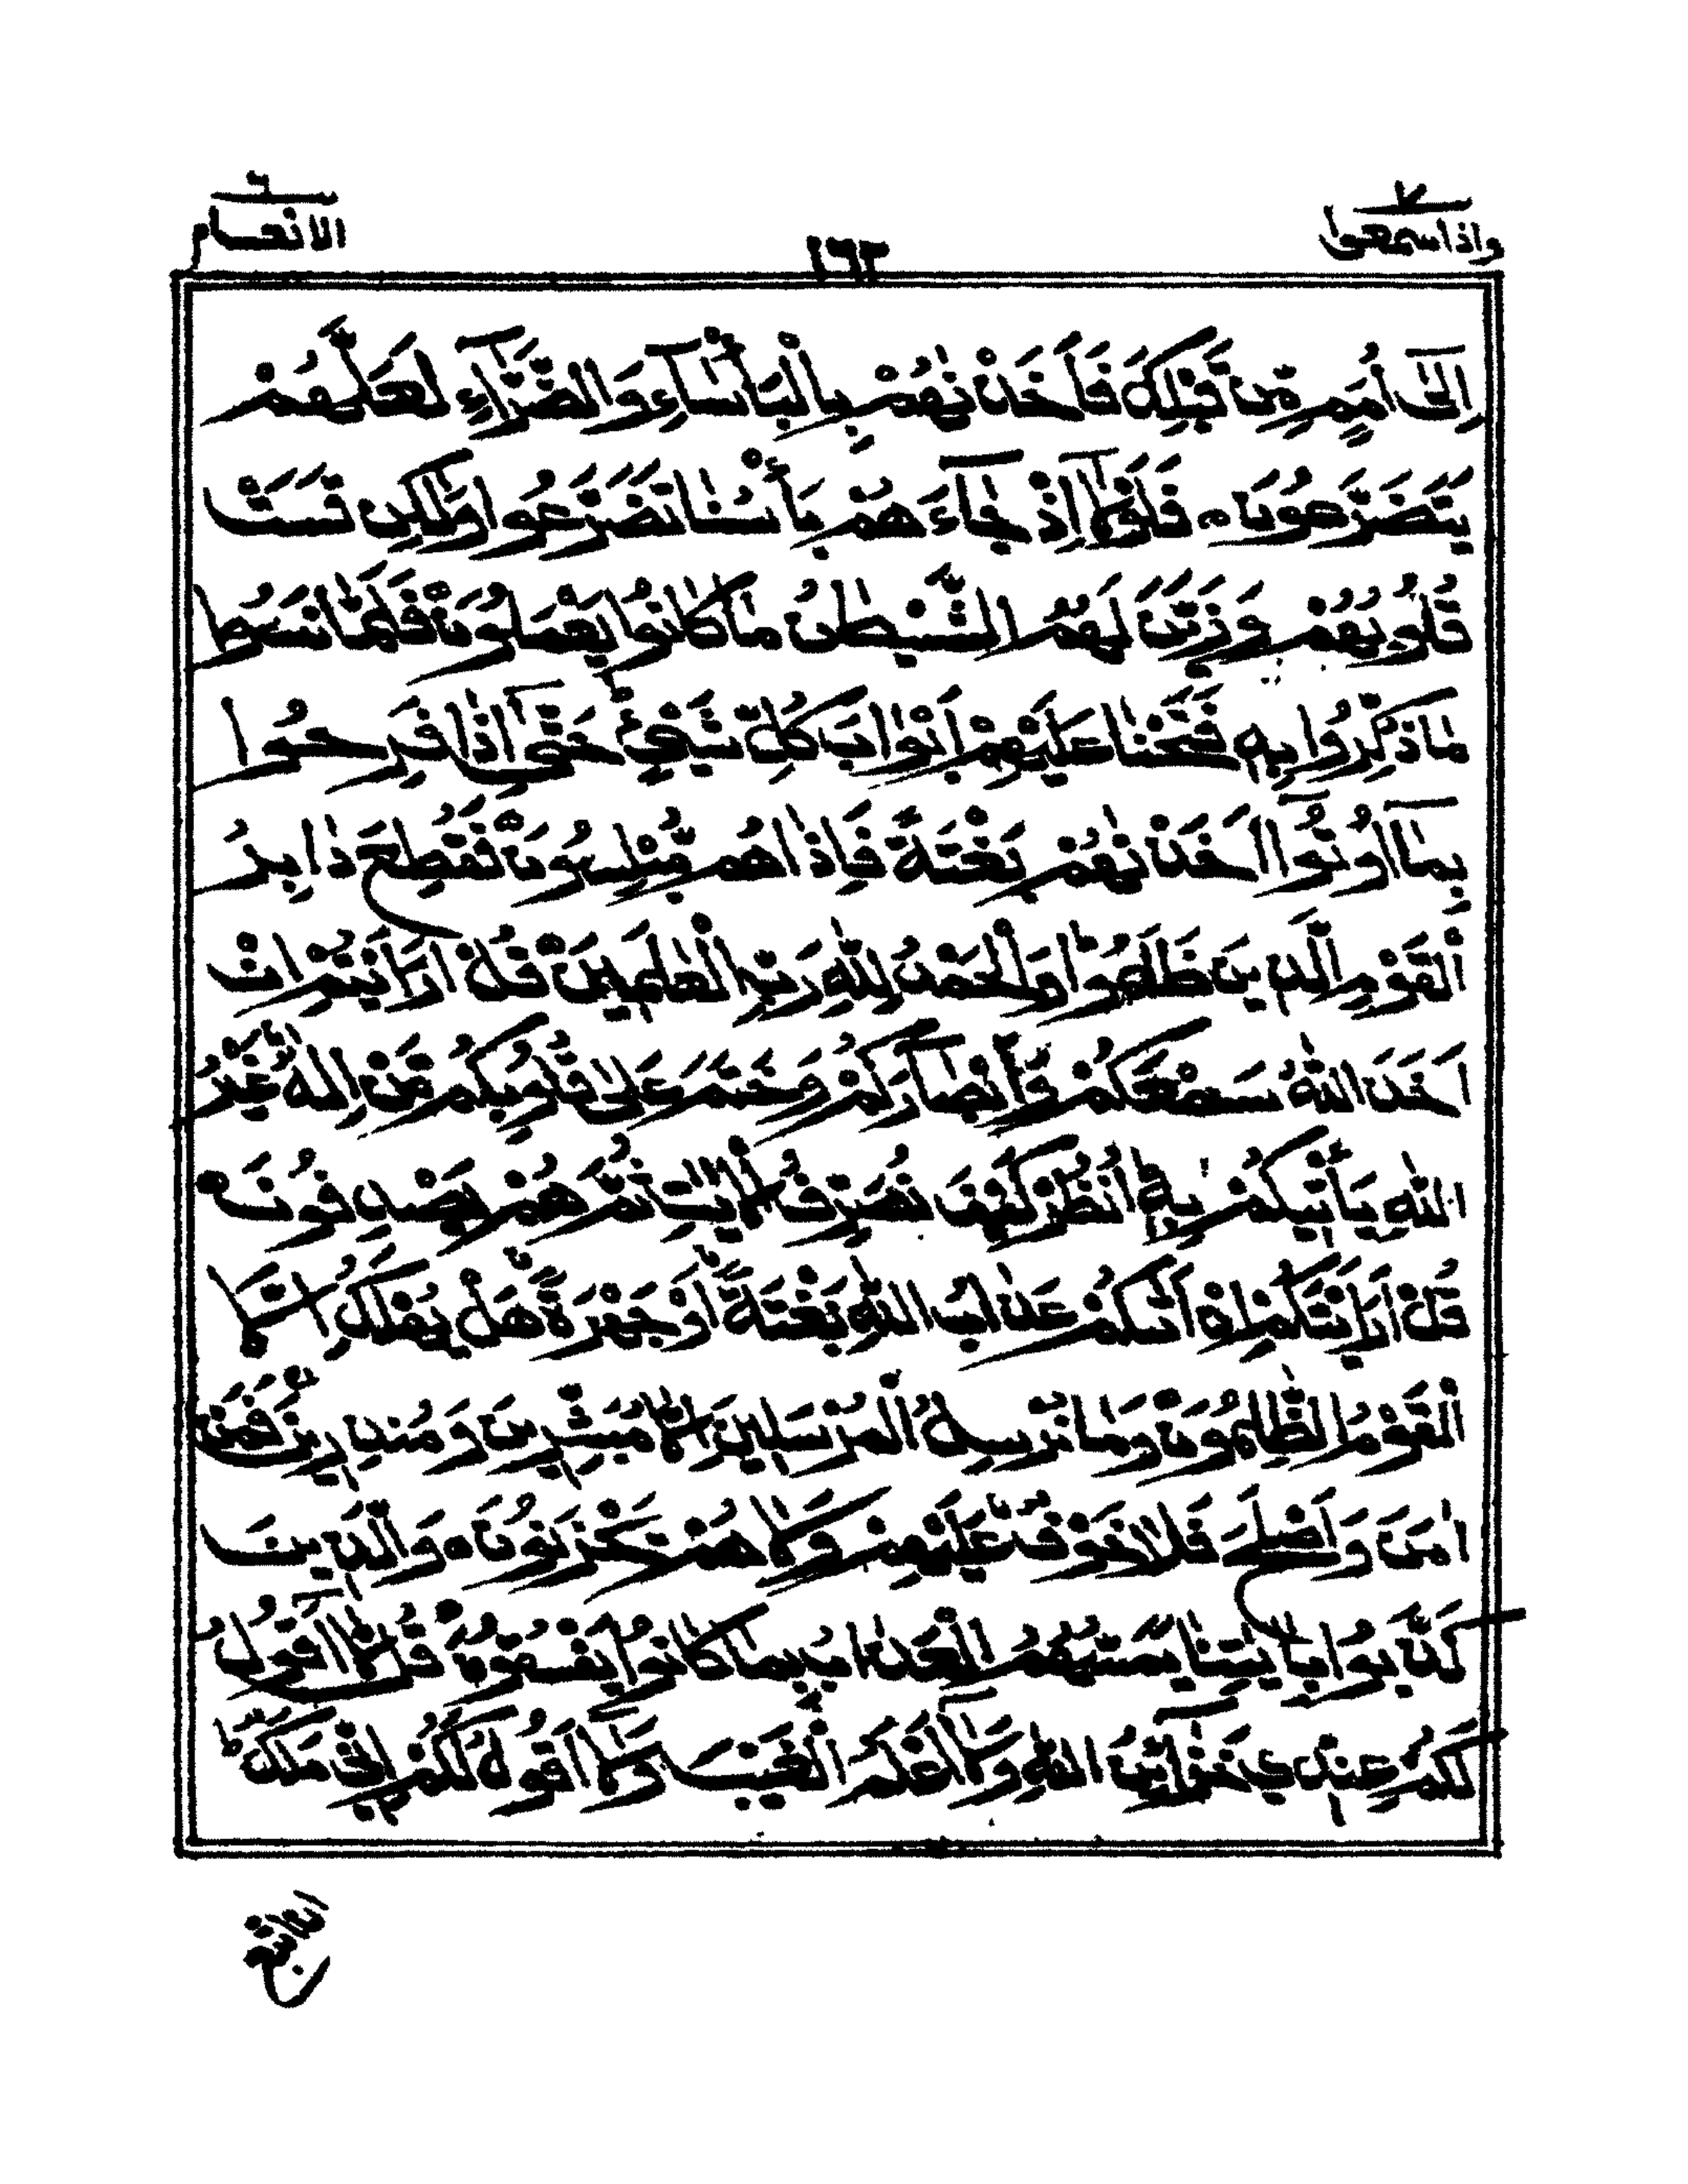 ٧
واذاسمعوا
١٦٢
٦
الانعام
اِلٰٓى اُمَمٍ مِّنْ قَبْلِكَ فَاَخَذْنٰهُمْ بِالْبَاْسَآءِ وَالضَّرَّآءِ لَعَلَّهُمْ
يَتَضَرَّعُوْنَ۝ فَلَوْلَآ اِذْ جَآءَهُمْ بَاْسُنَا تَضَرَّعُوْا وَلٰكِنْ قَسَتْ
قُلُوْبُهُمْ وَزَيَّنَ لَهُمُ الشَّيْطٰنُ مَا كَانُوْا يَعْمَلُوْنَ۝ فَلَمَّا نَسُوْا
مَا ذُكِّرُوْا بِهٖ فَتَحْنَا عَلَيْهِمْ اَبْوَابَ كُلِّ شَيْءٍ حَتّٰٓى اِذَا فَرِحُوْا
بِمَآ اُوْتُوْٓا اَخَذْنٰهُمْ بَغْتَةً فَاِذَا هُمْ مُّبْلِسُوْنَ۝ فَقُطِعَ دَابِرُ
الْقَوْمِ الَّذِيْنَ ظَلَمُوْا وَالْحَمْدُ لِلّٰهِ رَبِّ الْعٰلَمِيْنَ۝ قُلْ اَرَاَيْتُمْ اِنْ
اَخَذَ اللّٰهُ سَمْعَكُمْ وَاَبْصَارَكُمْ وَخَتَمَ عَلٰى قُلُوْبِكُمْ مَّنْ اِلٰهٌ غَيْرُ
اللّٰهِ يَاْتِيْكُمْ بِهٖ اُنْظُرْ كَيْفَ نُصَرِّفُ الْاٰيٰتِ ثُمَّ هُمْ يَصْدِفُوْنَ۝
قُلْ اَرَاَيْتَكُمْ اِنْ اَتٰىكُمْ عَذَابُ اللّٰهِ بَغْتَةً اَوْ جَهْرَةً هَلْ يُهْلَكُ اِلَّا
الْقَوْمُ الظّٰلِمُوْنَ۝ وَمَا نُرْسِلُ الْمُرْسَلِيْنَ اِلَّا مُبَشِّرِيْنَ وَمُنْذِرِيْنَ فَمَنْ
اٰمَنَ وَاَصْلَحَ فَلَا خَوْفٌ عَلَيْهِمْ وَلَا هُمْ يَحْزَنُوْنَ۝ وَالَّذِيْنَ
كَذَّبُوْا بِاٰيٰتِنَا يَمَسُّهُمُ الْعَذَابُ بِمَا كَانُوْا يَفْسُقُوْنَ۝ قُلْ لَّآ اَقُوْلُ
لَكُمْ عِنْدِيْ خَزَآئِنُ اللّٰهِ وَلَآ اَعْلَمُ الْغَيْبَ وَلَآ اَقُوْلُ لَكُمْ اِنِّيْ مَلَكٌ